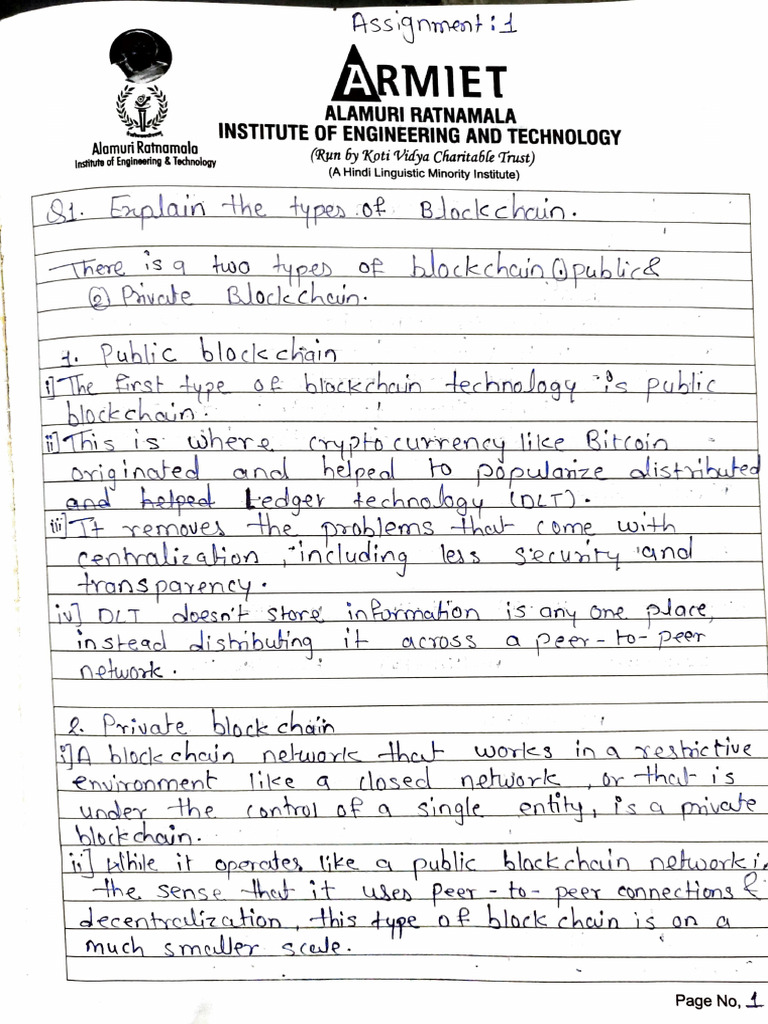 Assignment: 1
ARMIET
ALAMURI RATNAMALA
INSTITUTE OF ENGINEERING AND TECHNOLOGY
(Run by Koti Vidya Charitable Trust)
(A Hindi Linguistic Minority Institute)
Alamuri Ratnamala
Institute of Engineering & Technology
Q1. Explain the types of Blockchain.
There is a two types of blockchain ① public &
② Private Blockchain.
1. Public blockchain
i] The first type of blockchain technology is public
blockchain.
ii] This is where cryptocurrency like Bitcoin
originated and helped to popularize distributed
and helped Ledger technology (DLT).
iii] It removes the problems that come with
centralization, including less security and
transparency.
iv] DLT doesn't store information is any one place,
instead distributing it across a peer-to-peer
network.
2. Private blockchain
i] A blockchain network that works in a restrictive
environment like a closed network, or that is
under the control of a single entity, is a private
blockchain.
ii] While it operates like a public blockchain network in
the sense that it uses peer-to-peer connections &
decentralization, this type of blockchain is on a
much smaller scale.
Page No, 1